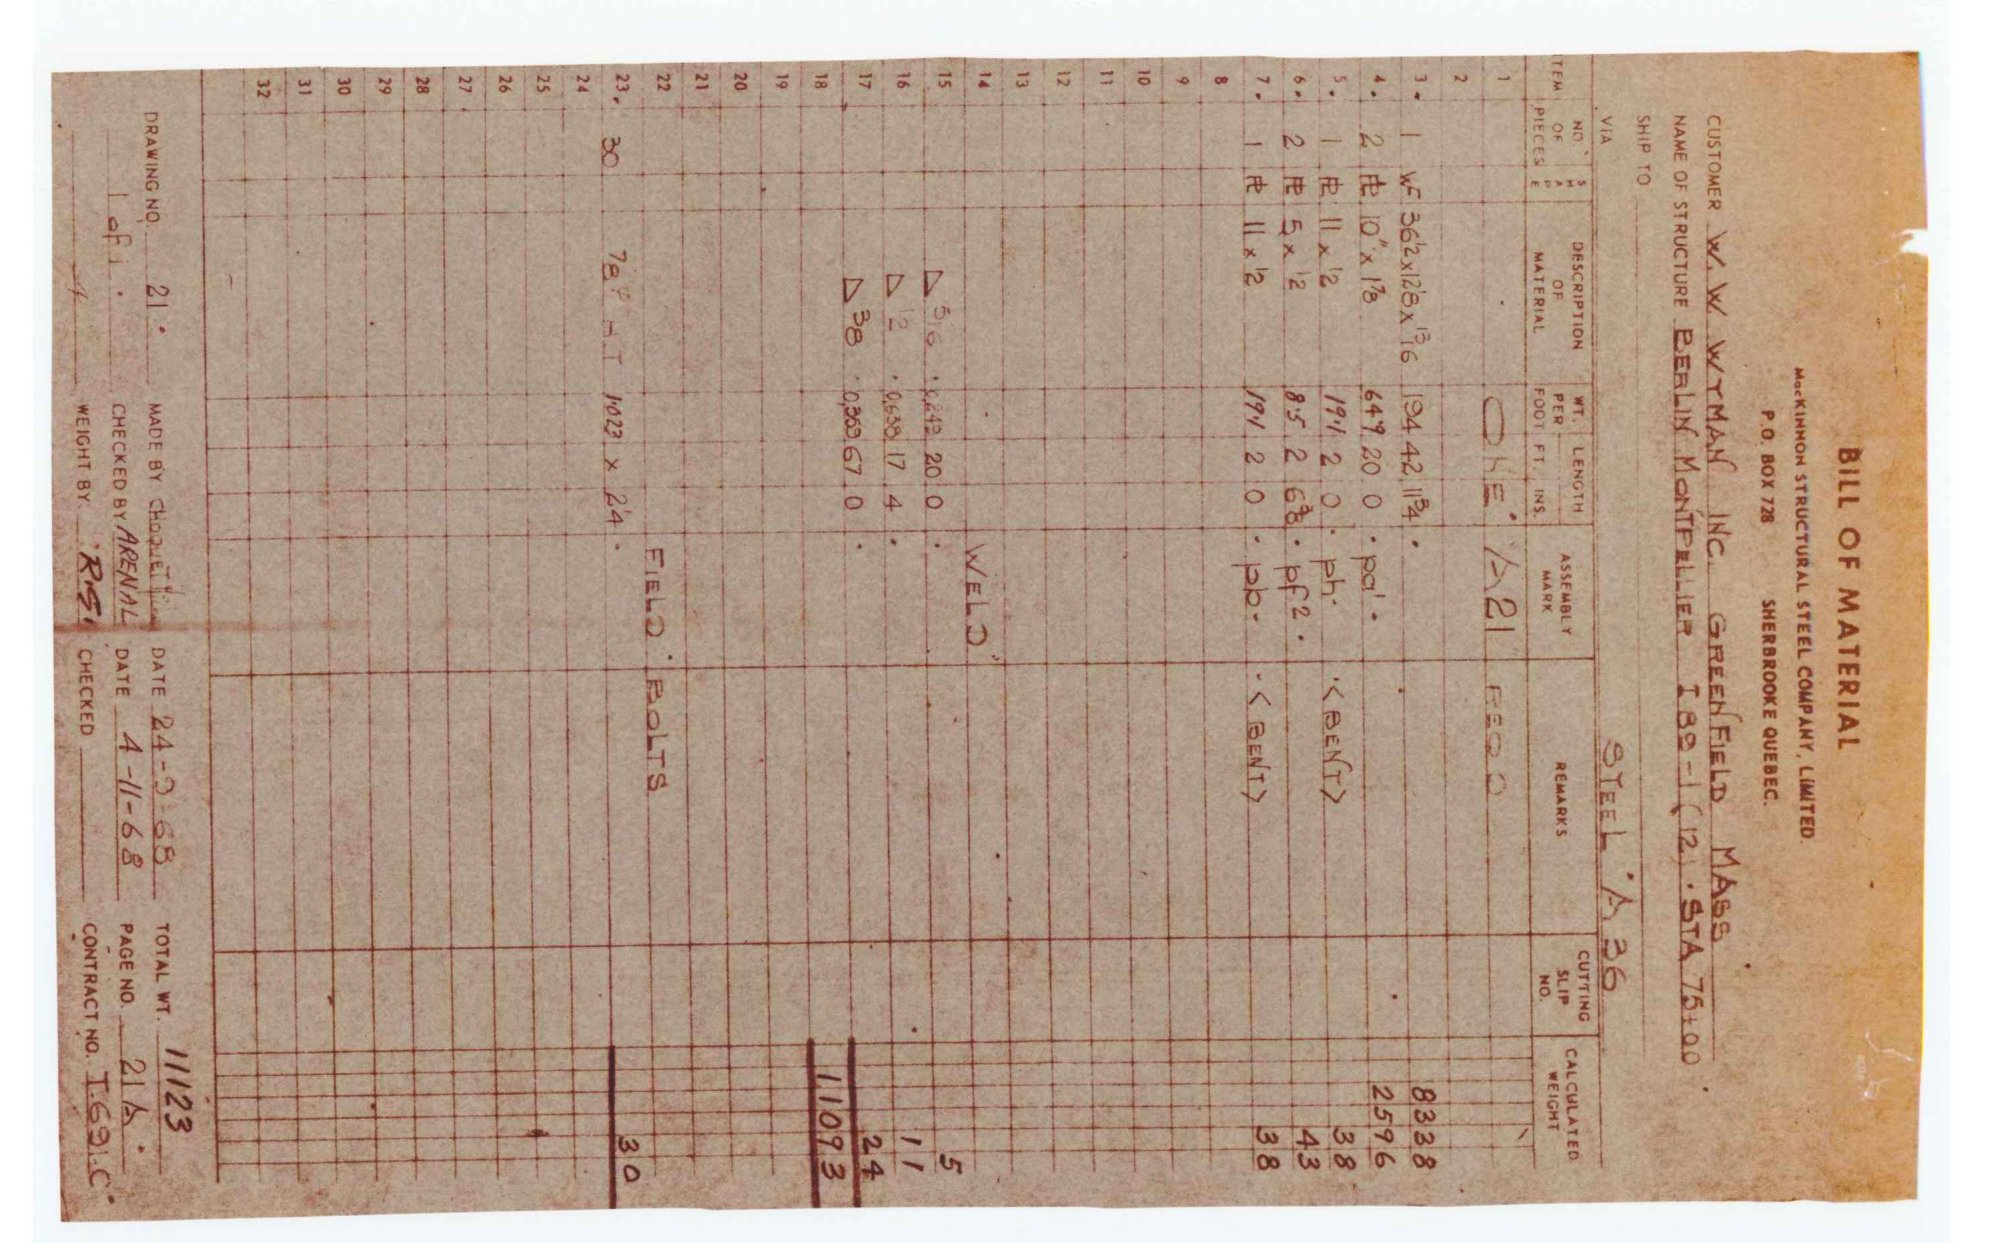 BILL OF MATERIAL
MacKINNON STRUCTURAL STEEL COMPANY, LIMITED
P.O. BOX 728 SHERBROOKE QUEBEC.
CUSTOMER W. W WYMAN INC. GREENFIELD MASS
NAME OF STRUCTURE BERLIN MONTPELLIER I 89-1 (12). STA 75+00
SHIP TO
VIA STEEL A 36
ITEM NO. OF PIECES SHAPE DESCRIPTION OF MATERIAL WT. PER FOOT LENGTH FT. INS. ASSEMBLY MARK REMARKS CUTTING SLIP NO. CALCULATED WEIGHT
1 ONE A21 REQD
2
3. 1 WF 36 1/2 x 12 1/8 x 13/16 194 42 11 3/4 8338
4. 2 PL 10" x 1 7/8 649 20 0 pa 2596
5. 1 PL 11 x 1/2 191 2 0 ph <BENT> 38
6. 2 PL 5 x 1/2 85 2 6 3/8 pf2 43
7. 1 PL 11 x 1/2 191 2 0 pb <BENT> 38
8
9
10
11
12
13
14 WELD
15 5/16 20 0 5
16 1/2 0,638 17 4 11
17 3/8 0,359 67 0 24
18 11093
19
20
21
22 FIELD BOLTS
23. 30 7/8 φ H T 1.023 x 2 1/4 30
24
25
26
27
28
29
30
31
32
DRAWING NO. 21 MADE BY DATE 24-9-68 TOTAL WT. 11123
1 of 1 CHECKED BY ARENAL DATE 4-11-68 PAGE NO. 21A
WEIGHT BY. R.G. CHECKED CONTRACT NO. T.691-C